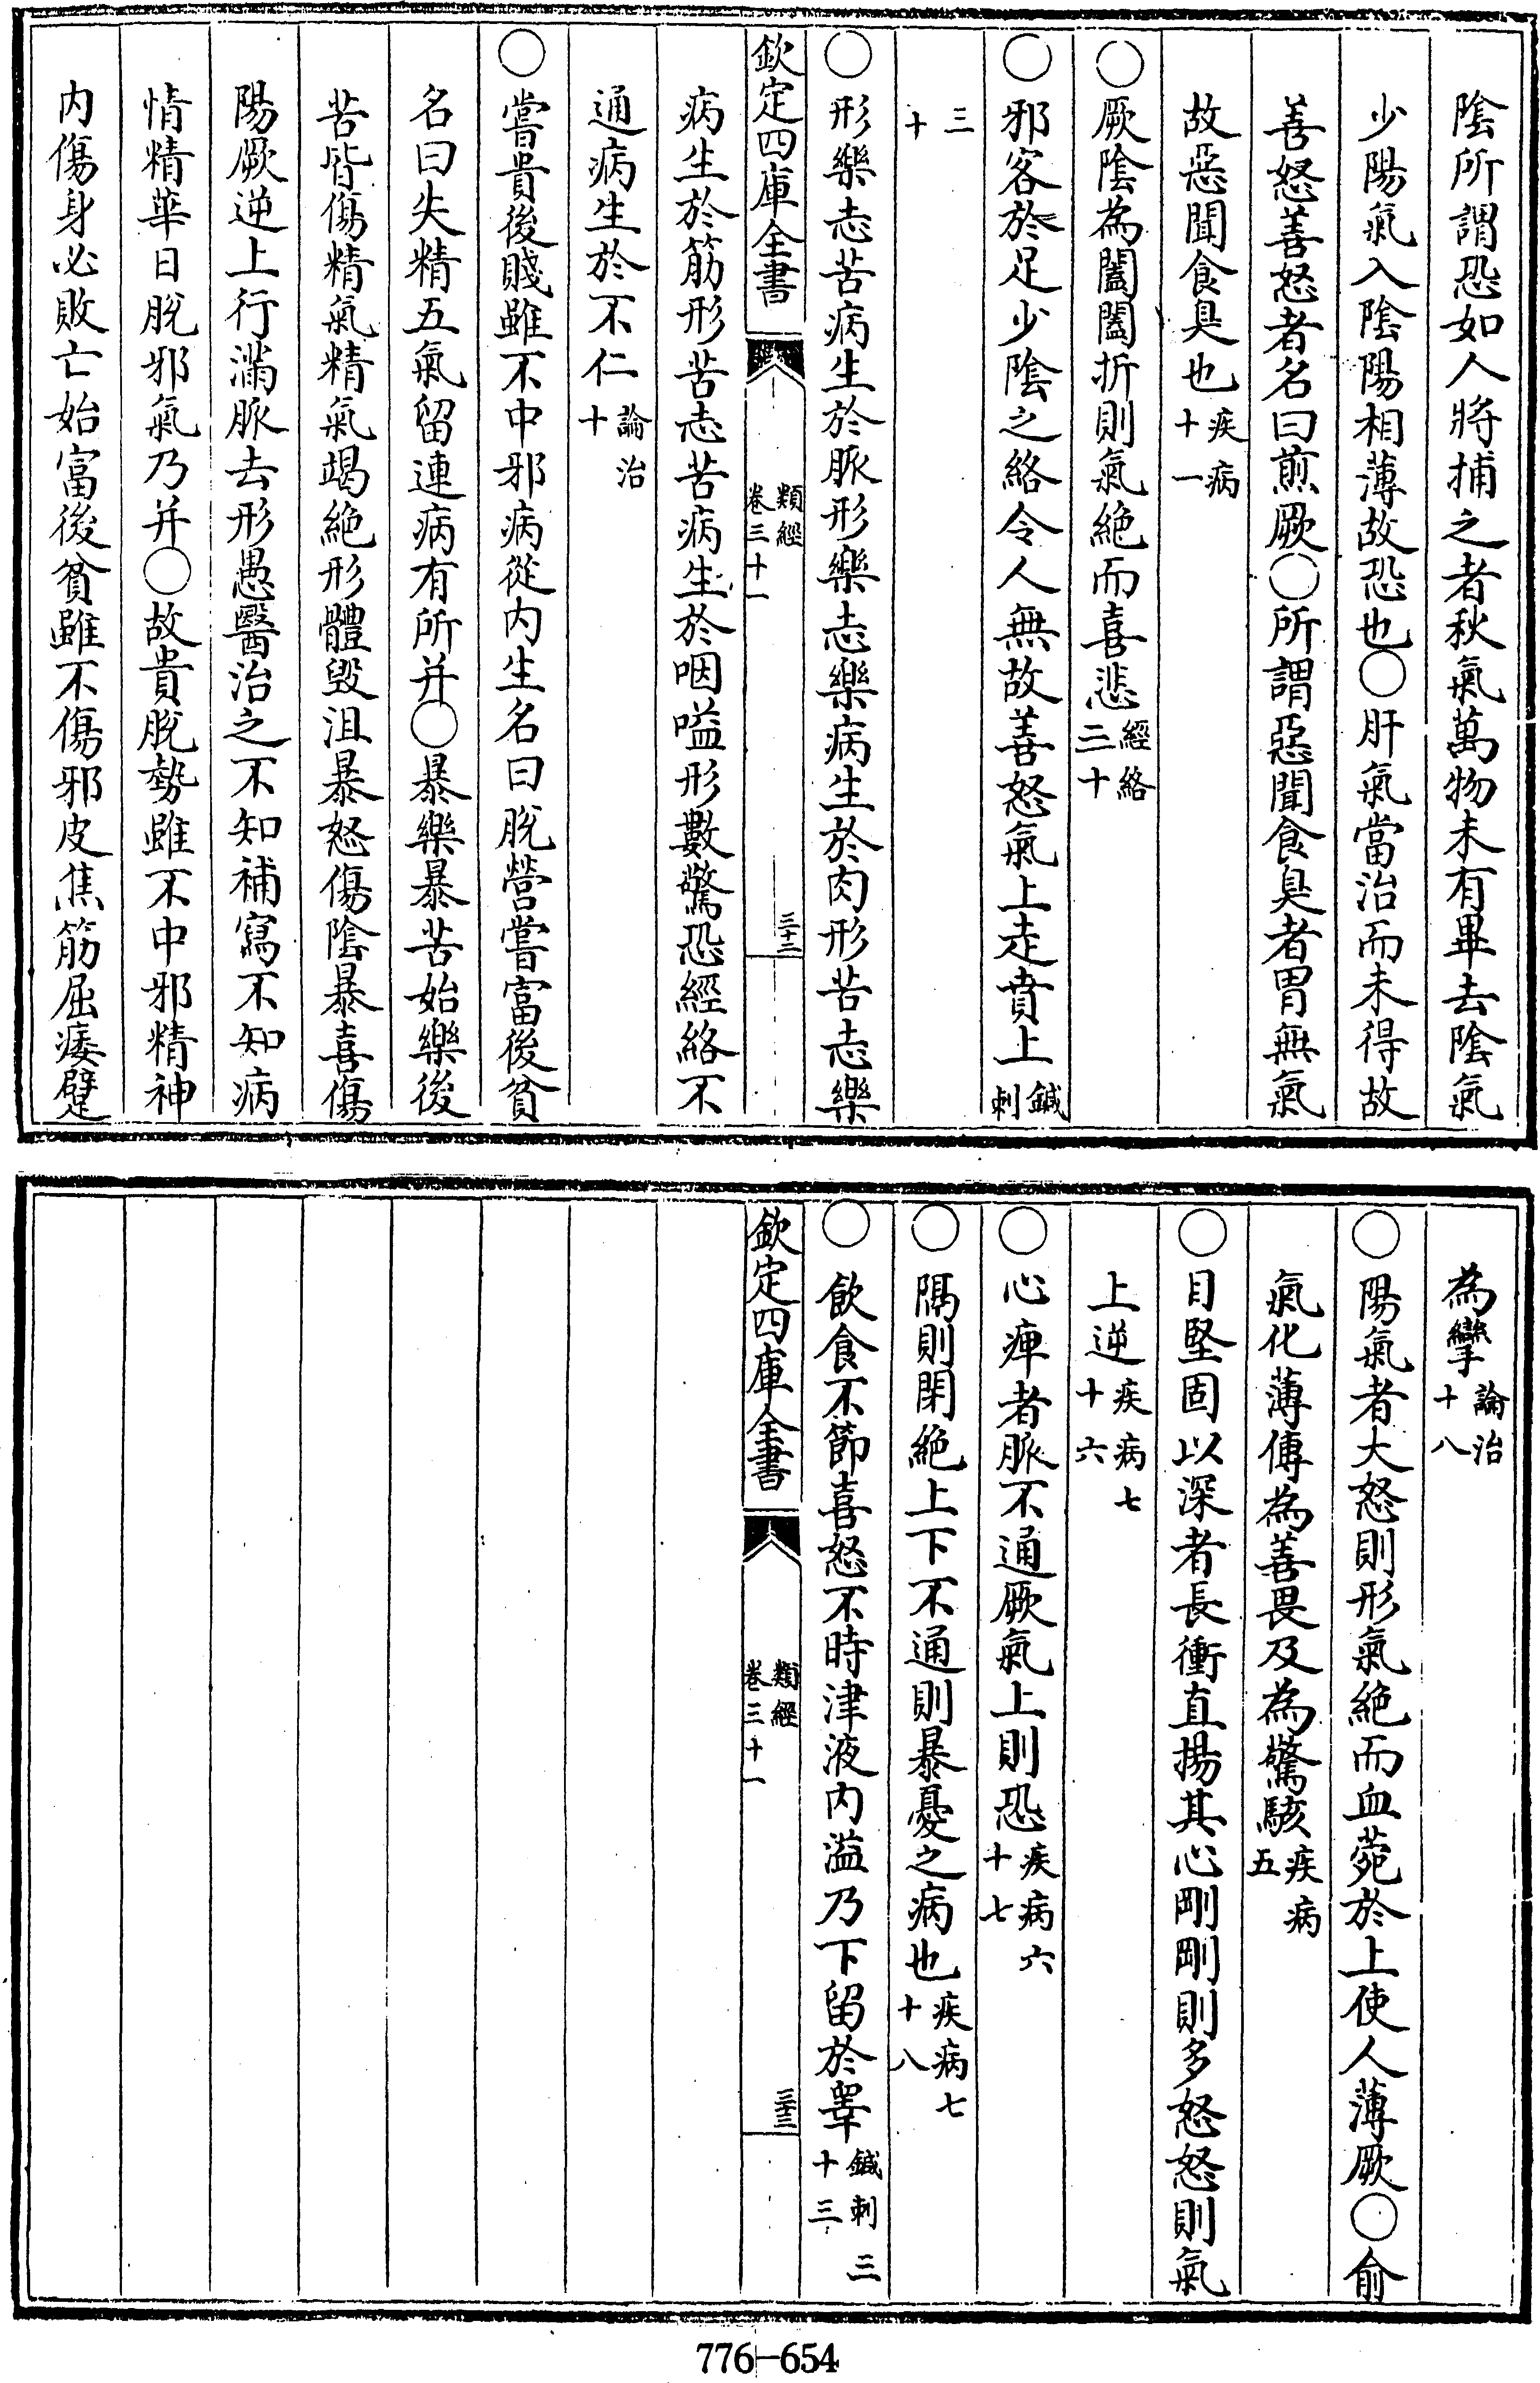 陰所謂恐如人將捕之者秋氣萬物未有畢去陰氣
少陽氣入陰陽相薄故恐也〇肝氣當治而未得故
善怒善怒者名曰煎厥〇所謂惡聞食臭者胃無氣
故惡聞食臭也疾病十一
〇厥陰為闔闔折則氣絕而喜悲經絡三十
〇邪客於足少陰之絡令人無故善怒氣上走賁上鍼刺
三十
〇形樂志苦病生於脈形樂志樂病生於肉形苦志樂
欽定四庫全書 類經 卷三十一 三十二
病生於筋形苦志苦病生於咽嗌形數驚恐經絡不
通病生於不仁論治十
〇嘗貴後賤雖不中邪病從内生名曰脫營嘗富後貧
名曰失精五氣留連病有所并〇暴樂暴苦始樂後
苦皆傷精氣精氣竭絕形體毀沮暴怒傷陰暴喜傷
陽厥逆上行滿脈去形愚醫治之不知補寫不知病
情精華日脫邪氣乃并〇故貴脫勢雖不中邪精神
内傷身必敗亡始富後貧雖不傷邪皮焦筋屈痿躄
為攣論治十八
〇陽氣者大怒則形氣絕而血菀於上使人薄厥〇俞
氣化薄傳為善畏及為驚駭疾病五
〇目堅固以深者長衝直揚其心剛剛則多怒怒則氣
上逆疾病七十六
〇心痺者脈不通厥氣上則恐疾病六十七
〇隔則閉絕上下不通則暴憂之病也疾病七十八
〇飲食不節喜怒不時津液内溢乃下留於睪鍼刺三十三
欽定四庫全書 類經 卷三十一 三十三
776-654